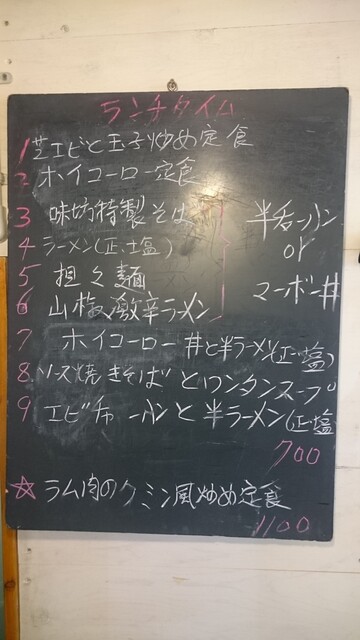 ランチタイム
1 芝エビと玉子炒め定食
2 ホイコーロー定食
3 味坊特製そば
4 ラーメン(正、塩)
5 担々麺
6 山椒激辛ラーメン
半チャーハン
or
マーボー丼
7 ホイコーロー丼と半ラーメン(正・塩)
8 ソース焼きそばとワンタンスープ
9 エビチャーハンと半ラーメン(正・塩)
700
☆ ラム肉のクミン風炒め定食
1100